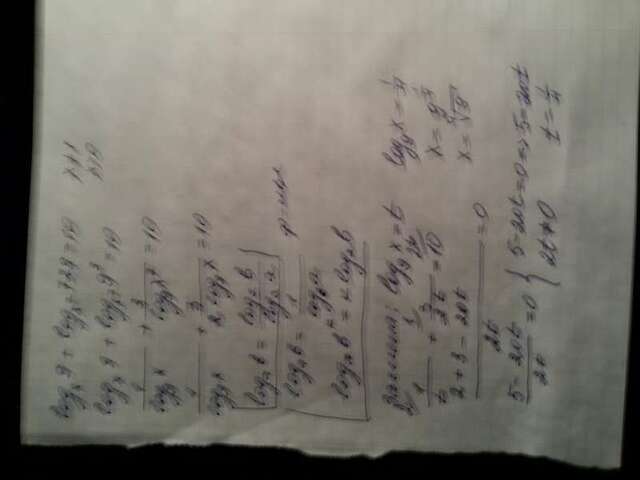 log_x 9 + log_{x²} 729 = 10   x≠1
log_x 9 + log_{x²} 9³ = 10   x>0
1/log_9 x + 3/log_9 x² = 10
1/log_9 x + 3/(2 log_9 x) = 10
log_a b = log_c b / log_c a
log_a b = 1/log_b a
log_a b^n = n log_a b
Замена: log_9 x = t
1/t + 3/2t = 10
(2 + 3 - 20t)/2t = 0
(5 - 20t)/2t = 0 { 5 - 20t = 0 => 5 = 20t
2t ≠ 0   t = 1/4
log_9 x = 1/4
x = 9^{1/4}